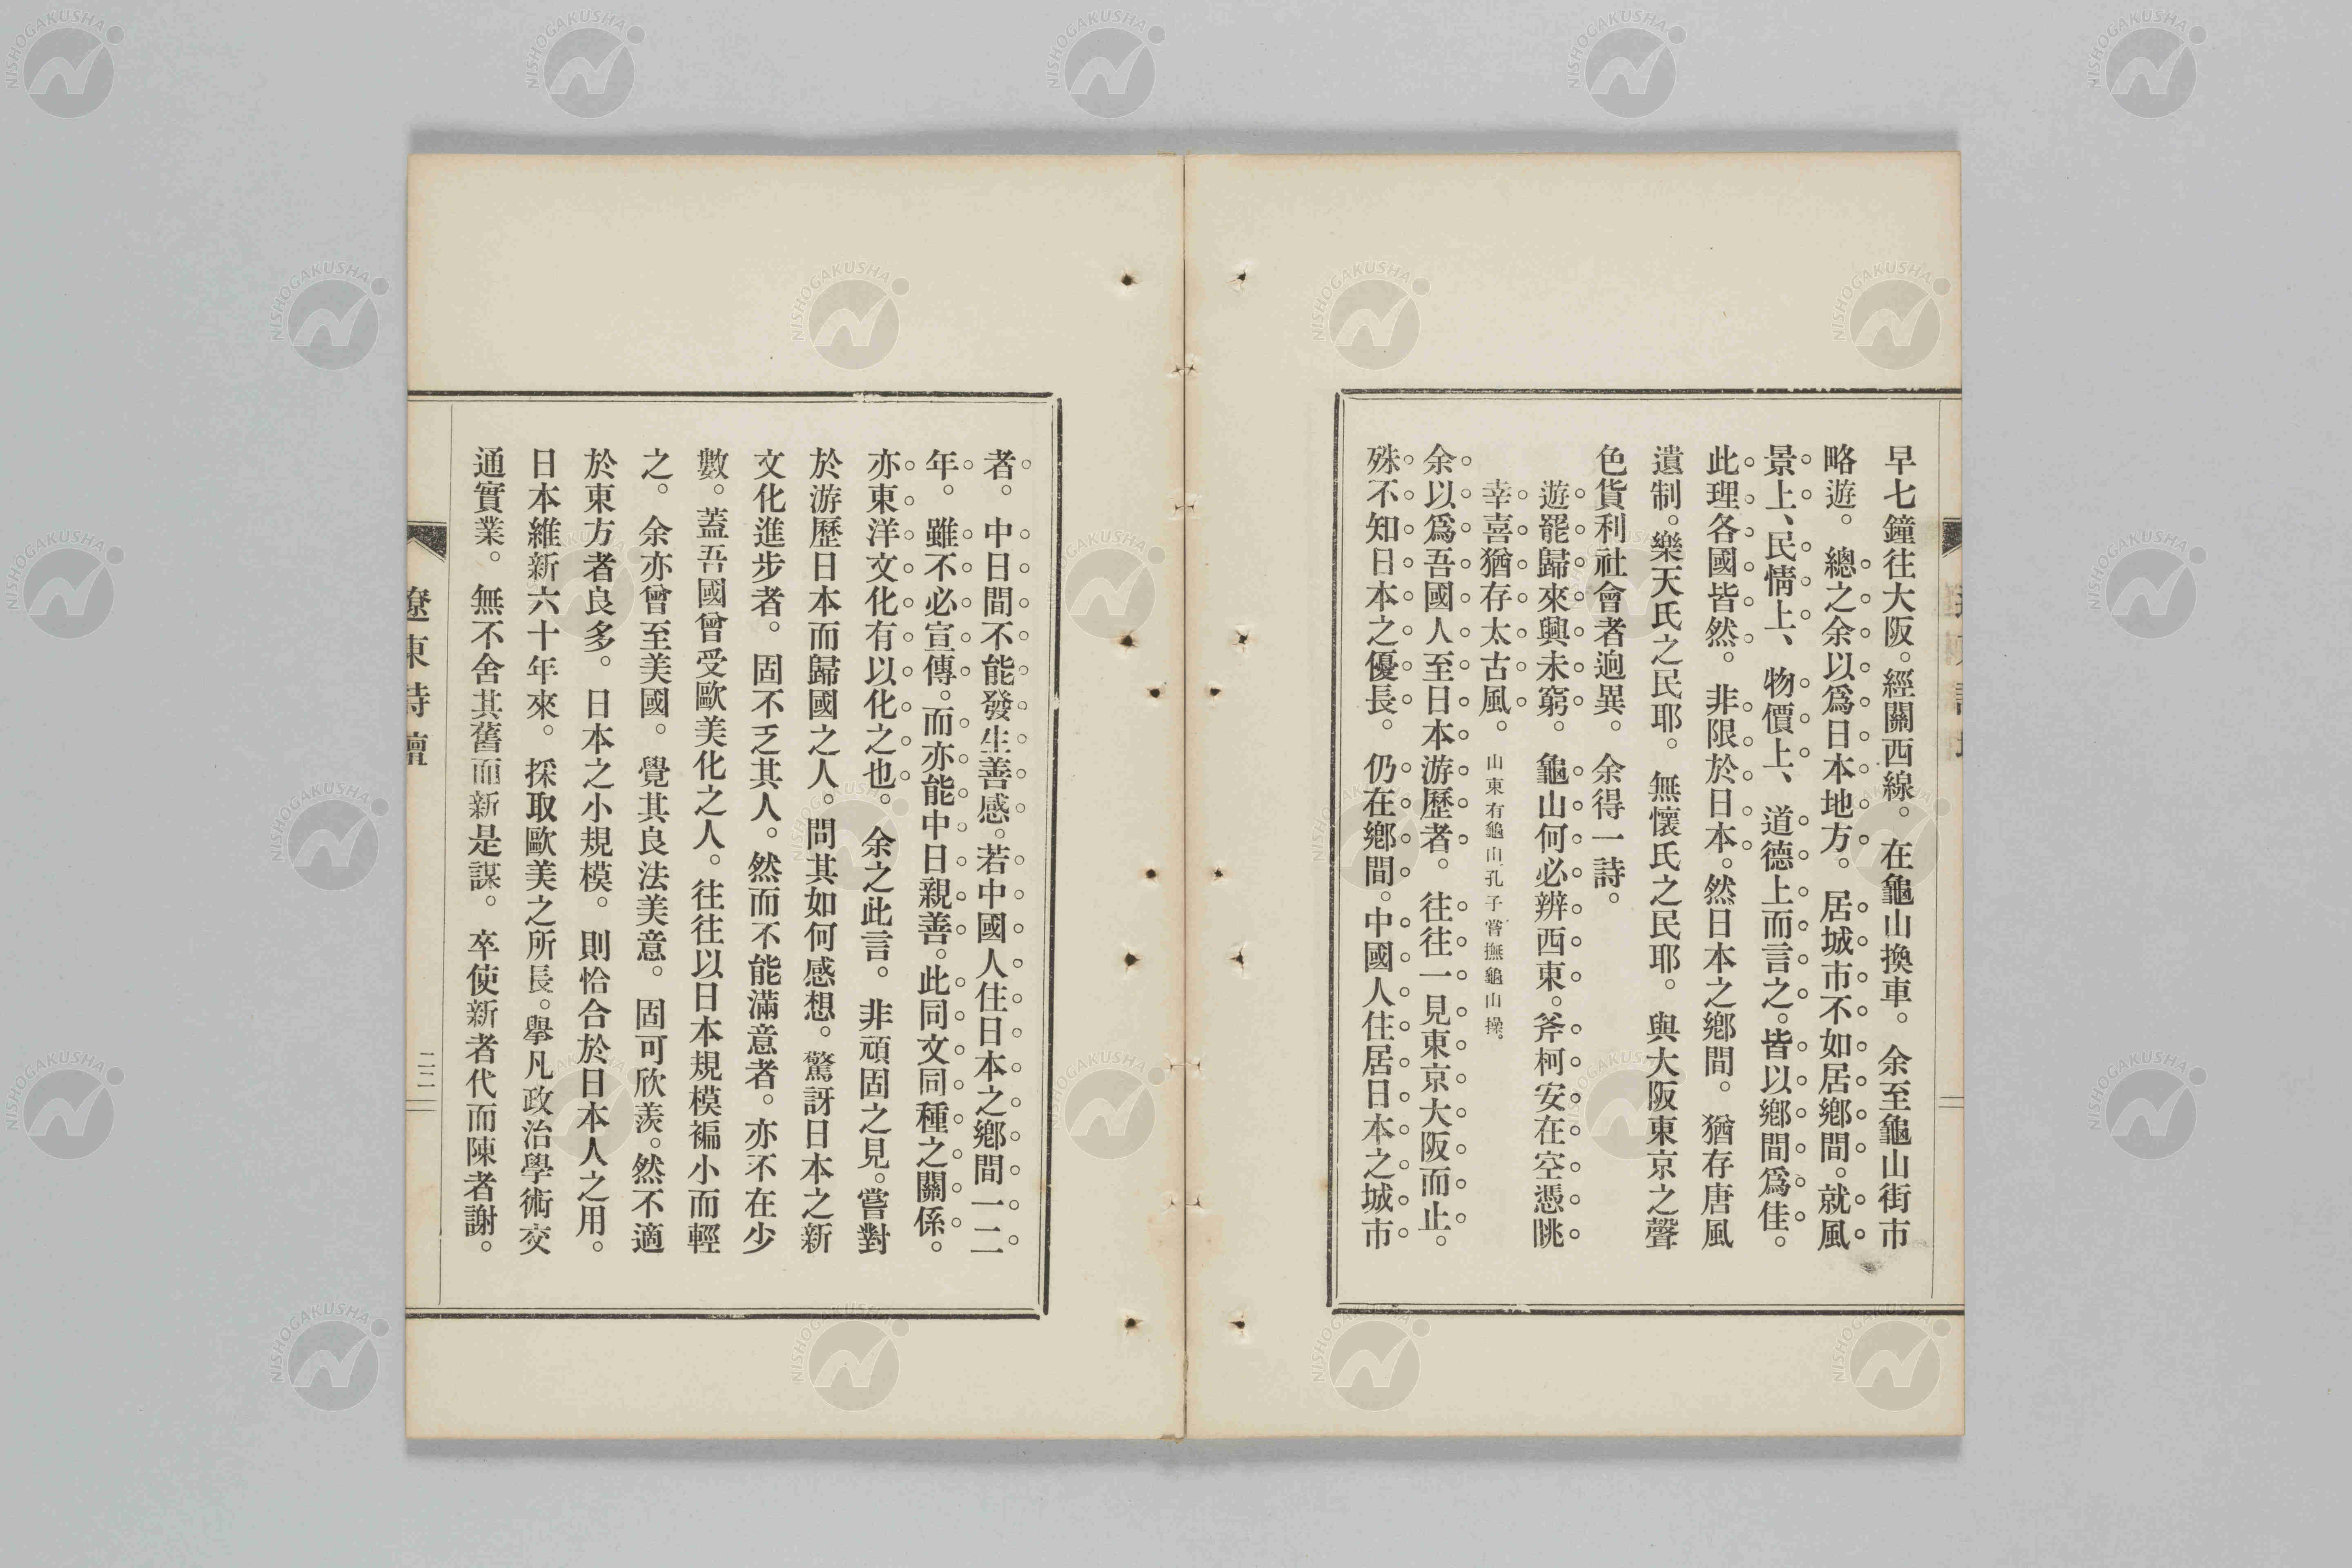 早七鐘往大阪。經關西線。在龜山換車。余至龜山街市
略遊。總之余以爲日本地方。居城市不如居鄕間。就風
景上、民情上、物價上、道德上而言之。皆以鄕間爲佳。
此理各國皆然。非限於日本。然日本之鄕間。猶存唐風
遺制。樂天氏之民耶。無懷氏之民耶。與大阪東京之聲
色貨利社會者迥異。余得一詩。
遊罷歸來興未窮。龜山何必辨西東。斧柯安在空憑眺
幸喜猶存太古風。山東有龜山孔子嘗撫龜山操。
余以爲吾國人至日本游歷者。往往一見東京大阪而止。
殊不知日本之優長。仍在鄕間。中國人住居日本之城市
者。中日間不能發生善感。若中國人住日本之鄕間一二
年。雖不必宣傳。而亦能中日親善。此同文同種之關係。
亦東洋文化有以化之也。余之此言。非頑固之見。嘗對
於游歷日本而歸國之人。問其如何感想。驚訝日本之新
文化進步者。固不乏其人。然而不能滿意者。亦不在少
數。蓋吾國曾受歐美化之人。往往以日本規模褊小而輕
之。余亦曾至美國。覺其良法美意。固可欣羨。然不適
於東方者良多。日本之小規模。則恰合於日本人之用。
日本維新六十年來。採取歐美之所長。舉凡政治學術交
通實業。無不舍其舊而新是謀。卒使新者代而陳者謝。
遼東詩壇
二二
NISHOGAKUSHA